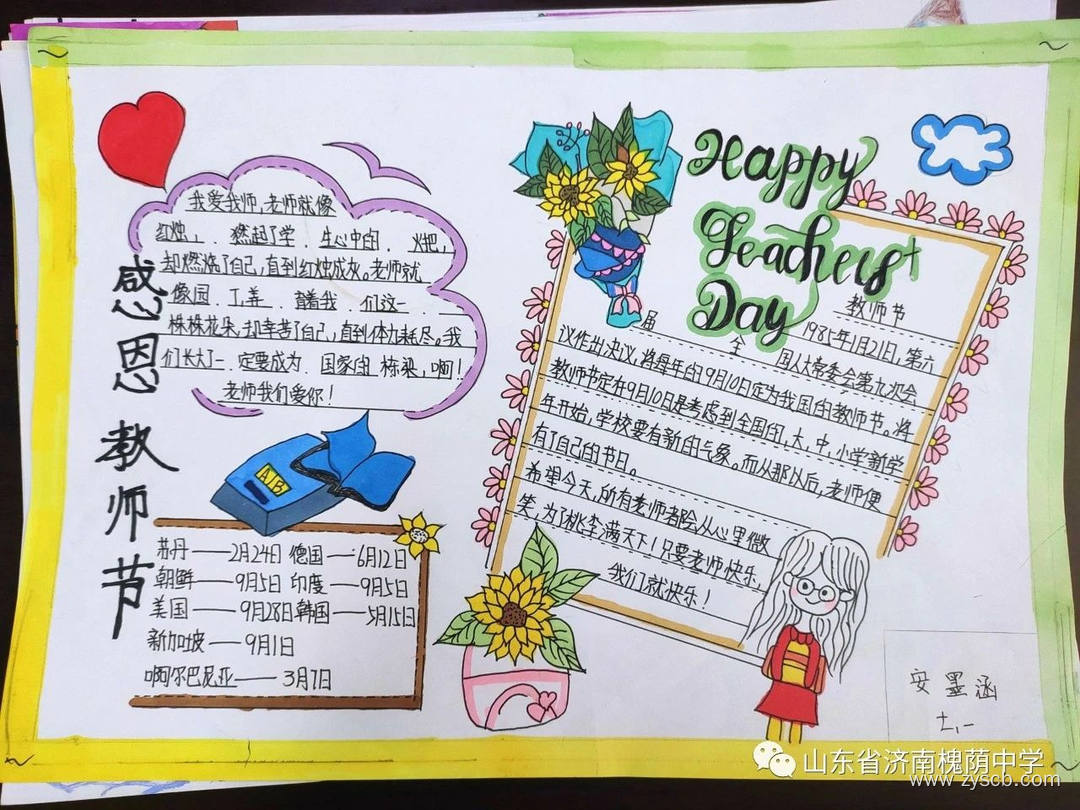 感恩教师节
我爱我师,老师就像
红烛, 燃起了学 生心中的 火把,
却燃烧了自己,直到红烛成灰。老师就
像园 丁,养 育着我 们这一
株株花朵,却辛苦了自己,直到体力耗尽。我
们长大了一定要成为 国家的 栋梁,啊!
老师我们爱你!
苏丹——2月24日 德国——6月12日
朝鲜——9月5日 印度——9月5日
美国——9月28日 韩国——5月15日
新加坡——9月1日
啊尔巴尼亚——3月7日
Happy
Teachers'
Day
教师节
1985年1月21日,第六
届 全 国人大常委会第九次会
议作出决议,将每年的9月10日定为我国的教师节。将
教师节定在9月10日是考虑到全国的,大、中、小学新学
年开始,学校要有新的气象。而从那以后,老师便
有了自己的节日。
希望今天,所有老师都会从心里微
笑,为了桃李满天下!只要老师快乐,
我们就快乐!
安墨涵
七.一
山东省济南槐荫中学
www.zyscb.com